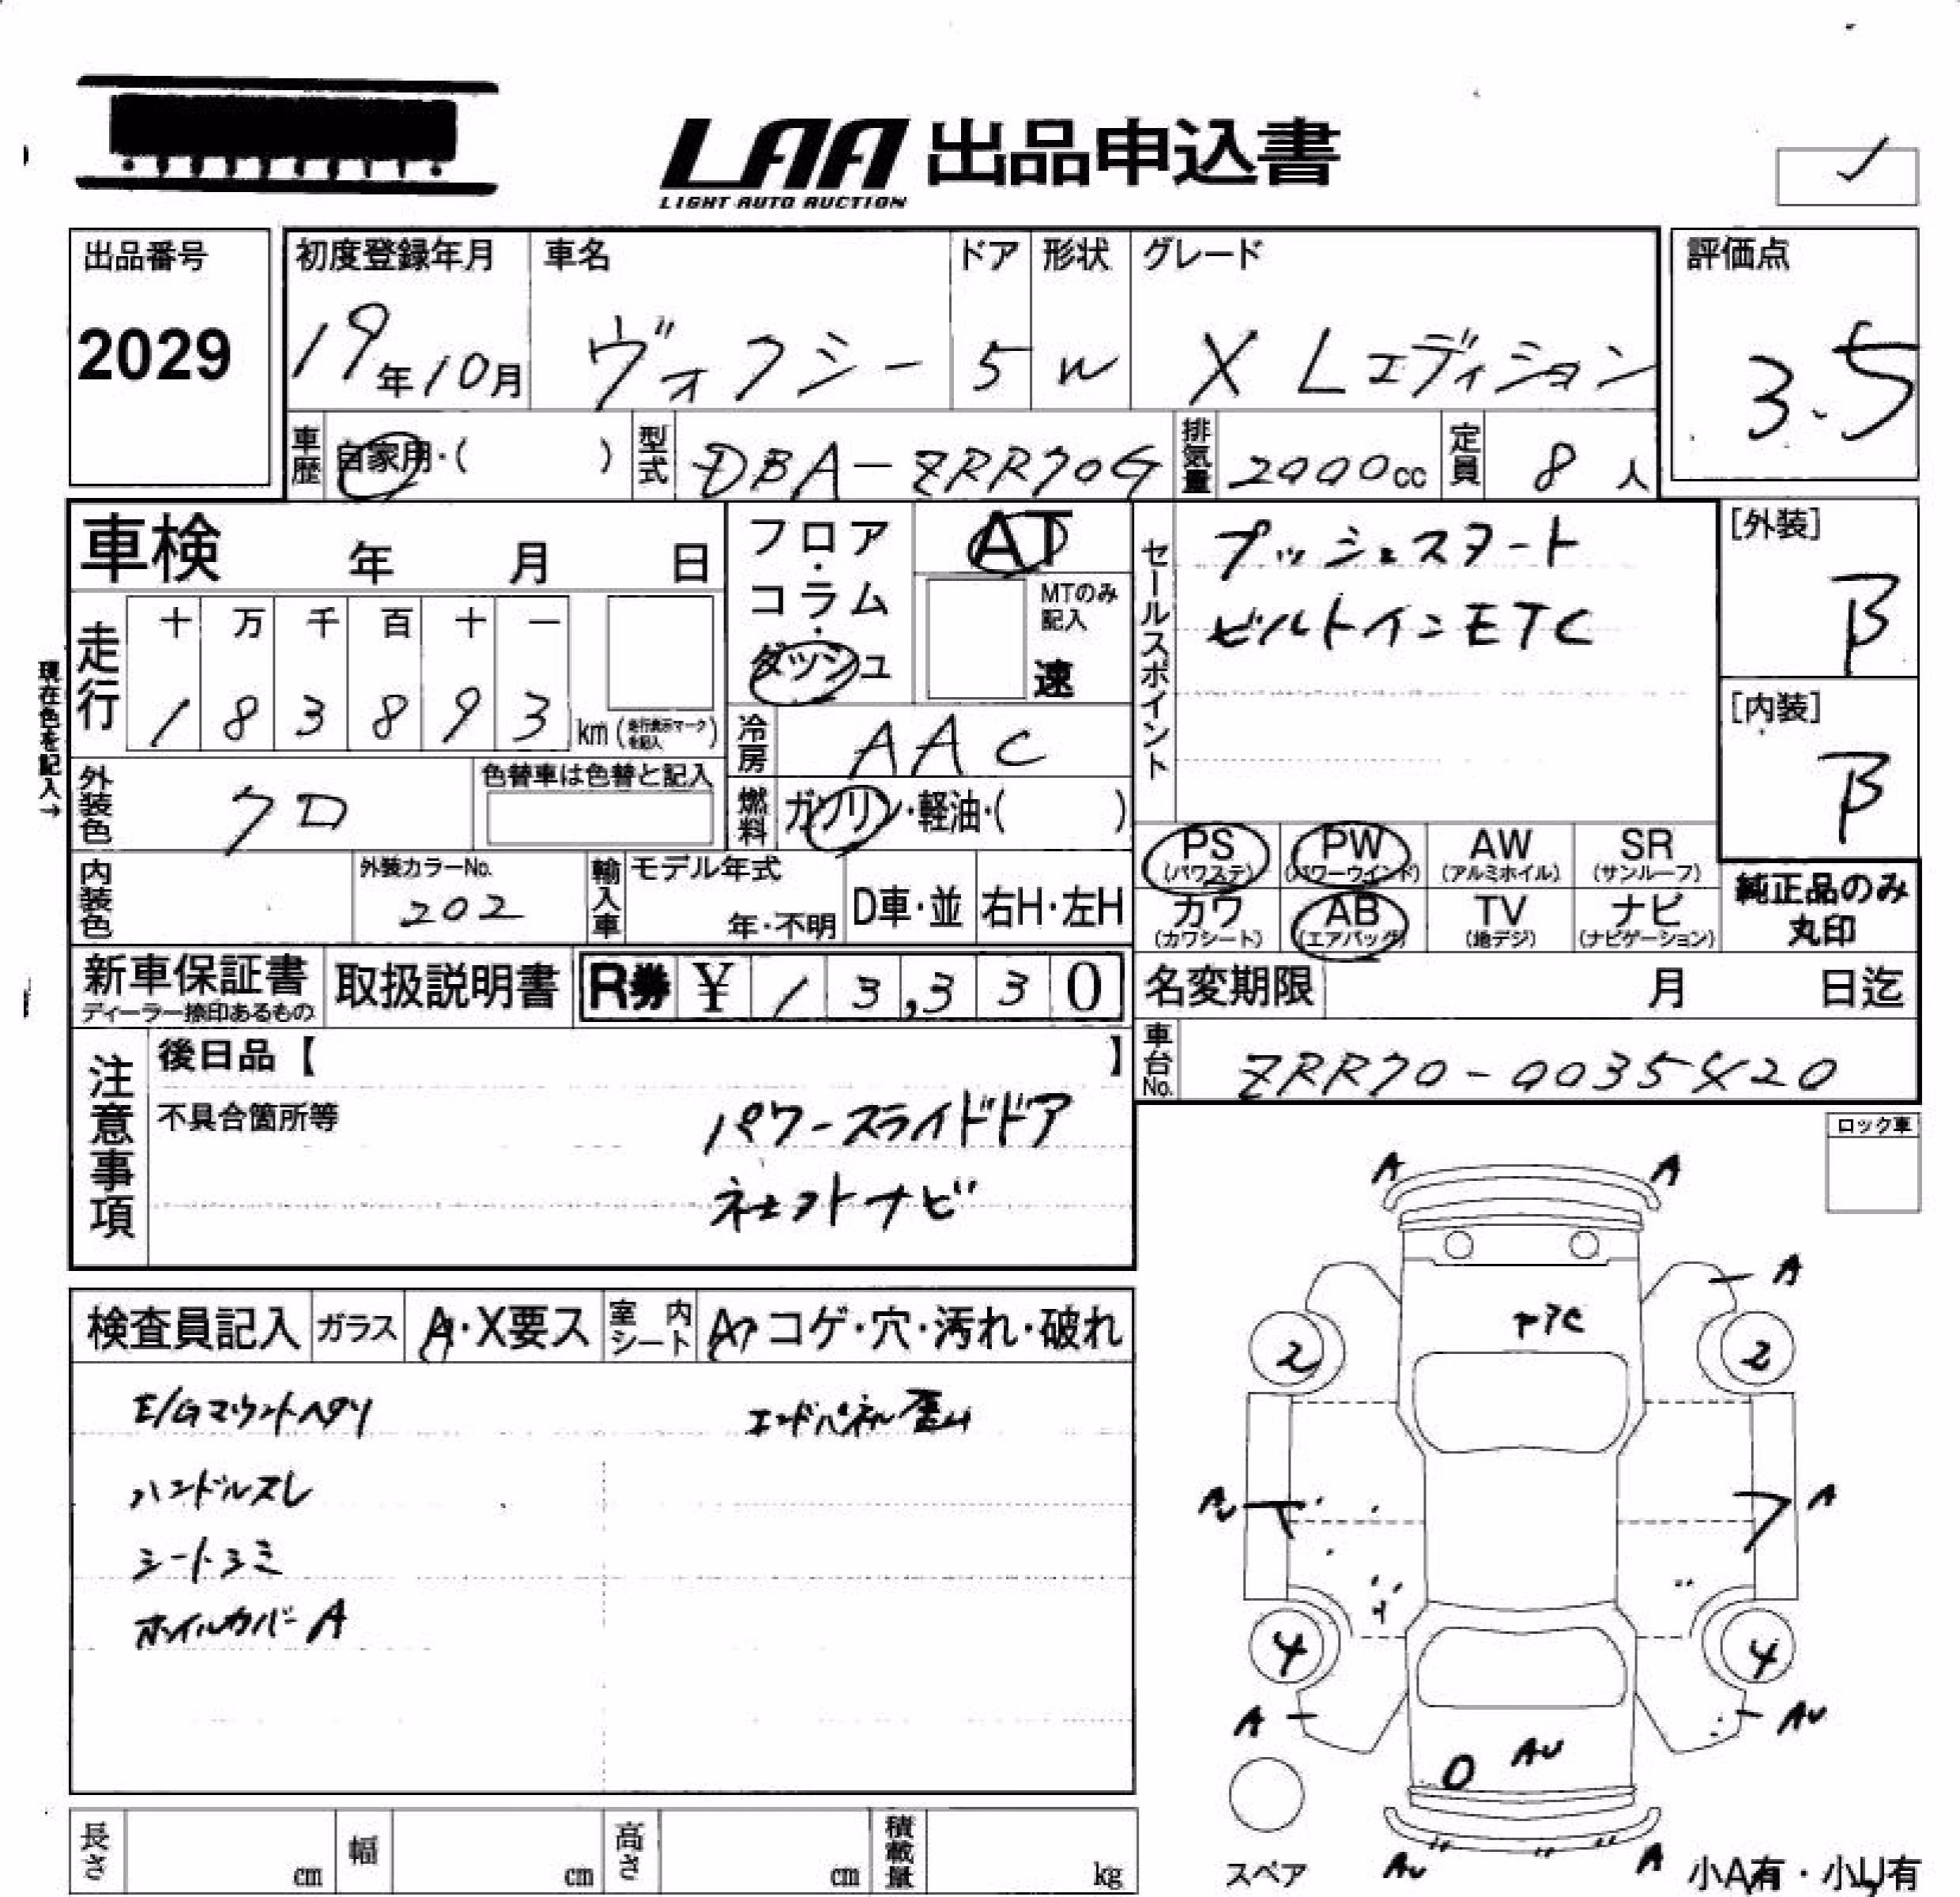 LAA 出品申込書
LIGHT AUTO AUCTION
出品番号
2029
初度登録年月
19年10月
車名
ヴォクシー
ドア
5
形状
W
グレード
X Lエディション
評価点
3.5
車歴
自家用・( )
型式
DBA-ZRR70G
排気量
2000cc
定員
8人
車検 年 月 日
フロア・コラム・ダッシュ
AT
MTのみ記入
速
セールスポイント
プッシュスタート
ビルトインETC
[外装]
B
[内装]
B
現在色を記入→
走行
十 万 千 百 十 一
1 8 3 8 9 3 km (走行表示マークを記入)
冷房
AAC
外装色
クロ
色替車は色替と記入
燃料
ガソリン・軽油・( )
PS (パワステ)
PW (パワーウインド)
AW (アルミホイル)
SR (サンルーフ)
カワ (カワシート)
AB (エアバッグ)
TV (地デジ)
ナビ (ナビゲーション)
純正品のみ
丸印
内装色
外装カラーNo.
202
輸入車
モデル年式
年・不明
D車・並
右H・左H
新車保証書
ディーラー捺印あるもの
取扱説明書
R券 ¥ 1 3,3 3 0
名変期限 月 日迄
車台No.
ZRR70-0035420
注意事項
後日品【 】
不具合箇所等
パワースライドドア
社外ナビ
ロック車
検査員記入
ガラス
A・X要ス
室内シート
コゲ・穴・汚れ・破れ
E/Gマウントヘタリ
エンドパネル歪ム
ハンドルスレ
シートシミ
ホイルカバーA
A
A
A
2
2
A
4
4
A
AU
O
AU
AU
A
スペア
小A有・小U有
長さ cm
幅 cm
高さ cm
積載量 kg